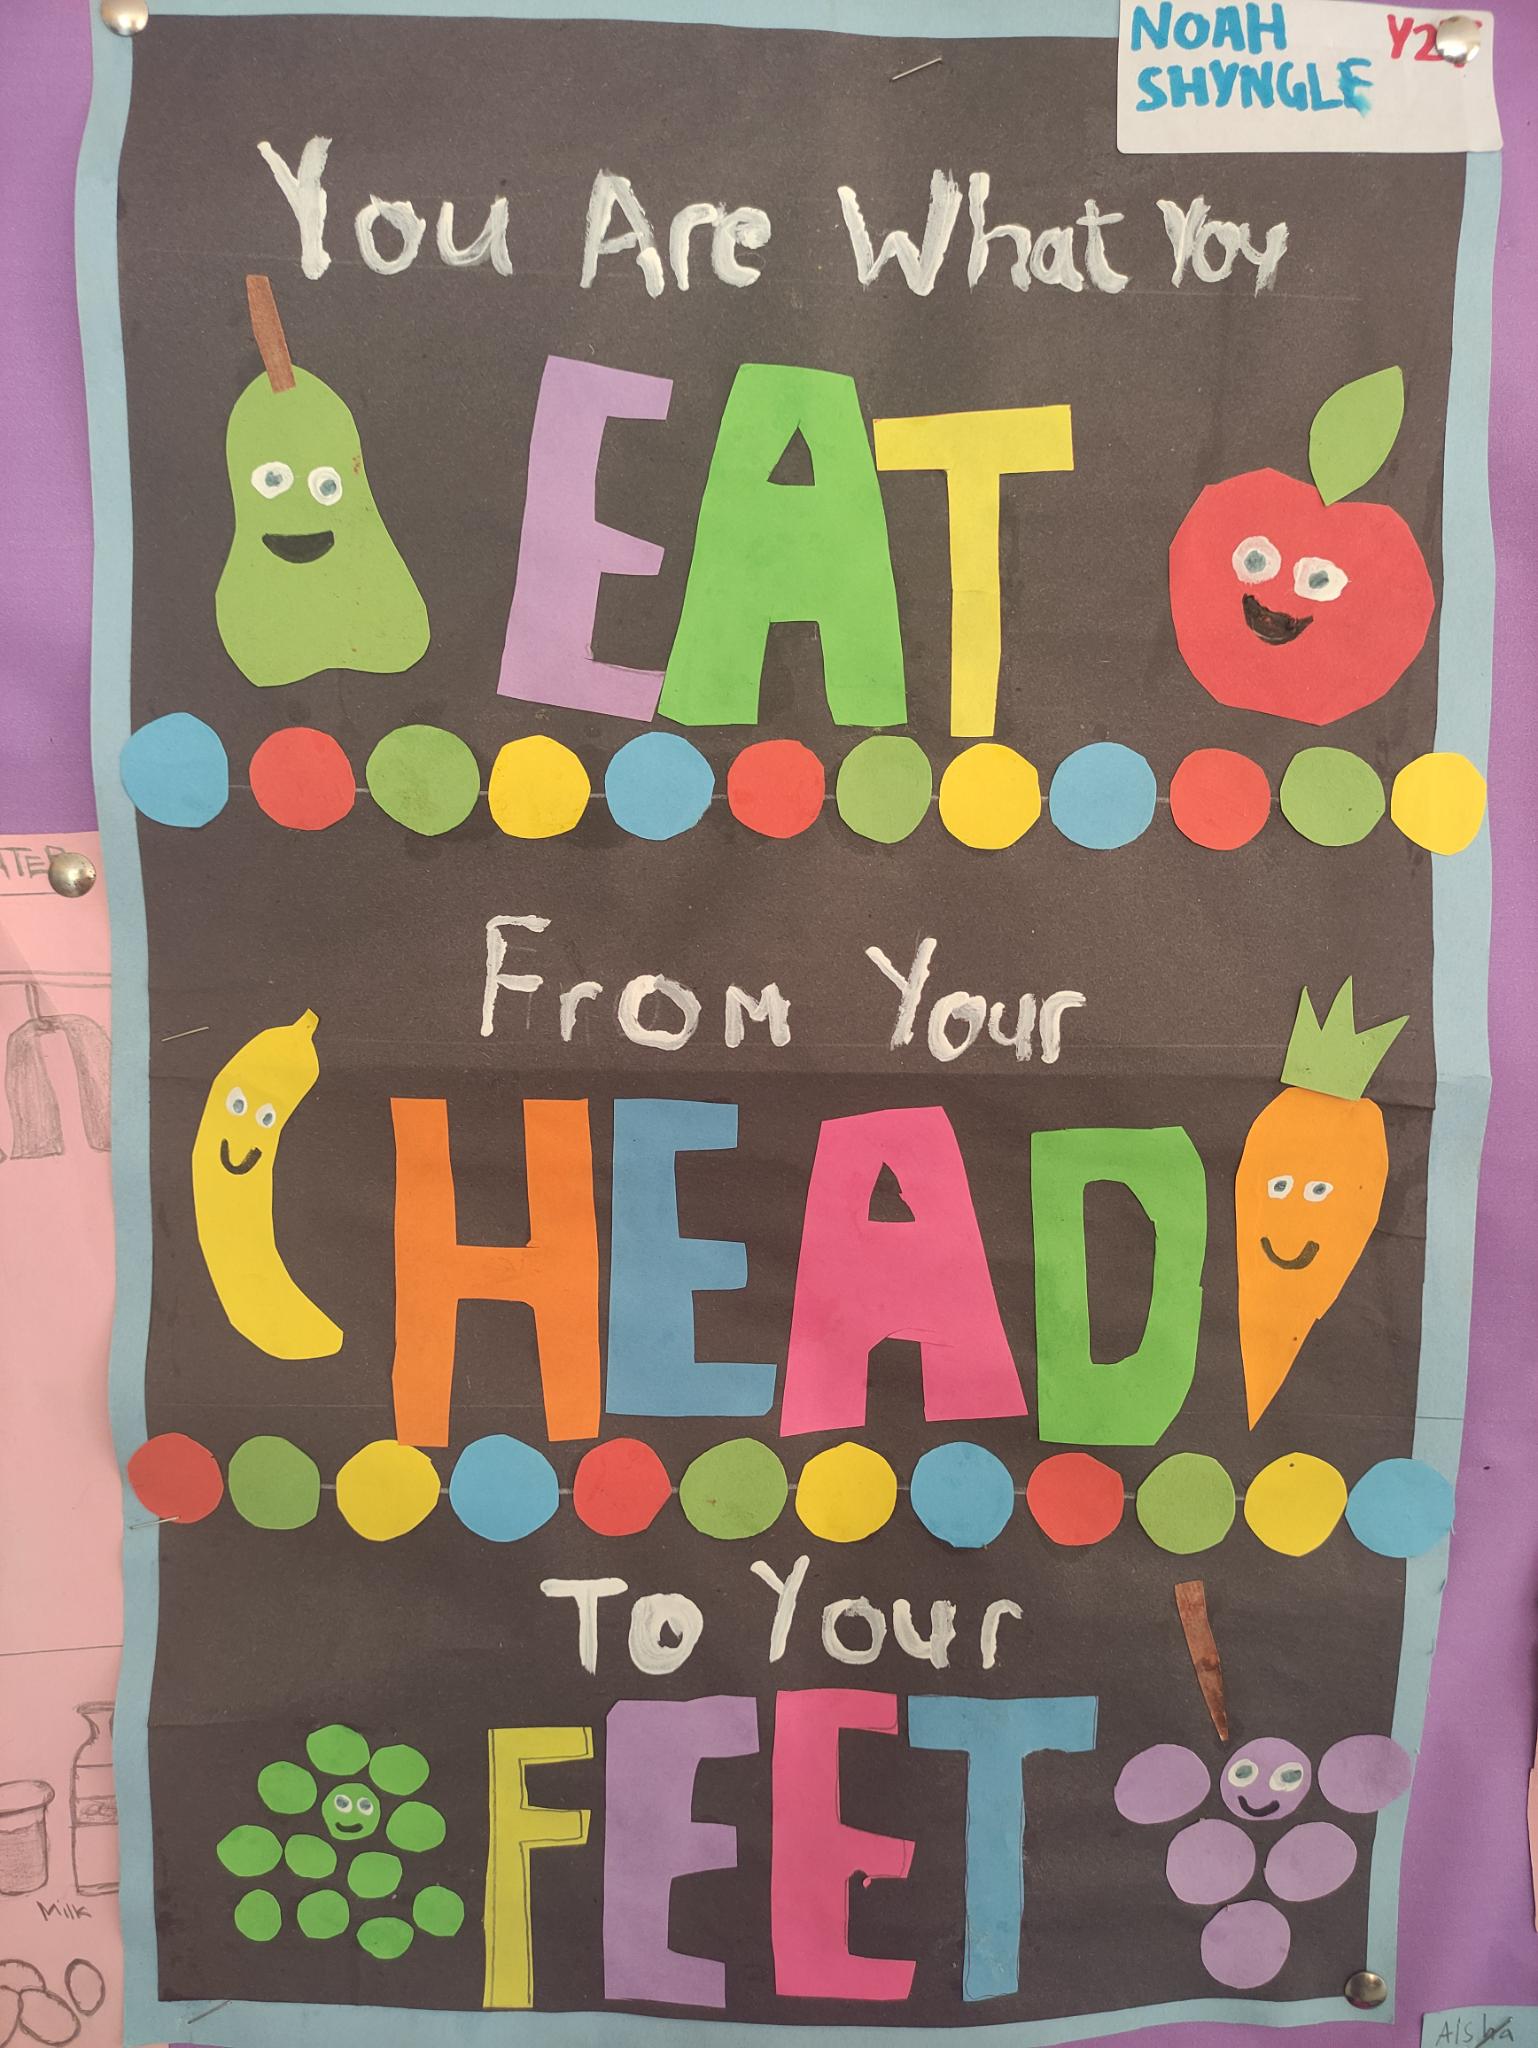 NOAH
SHYNGLE
You Are What You
EAT
From Your
HEAD
To Your
FEET
Milk